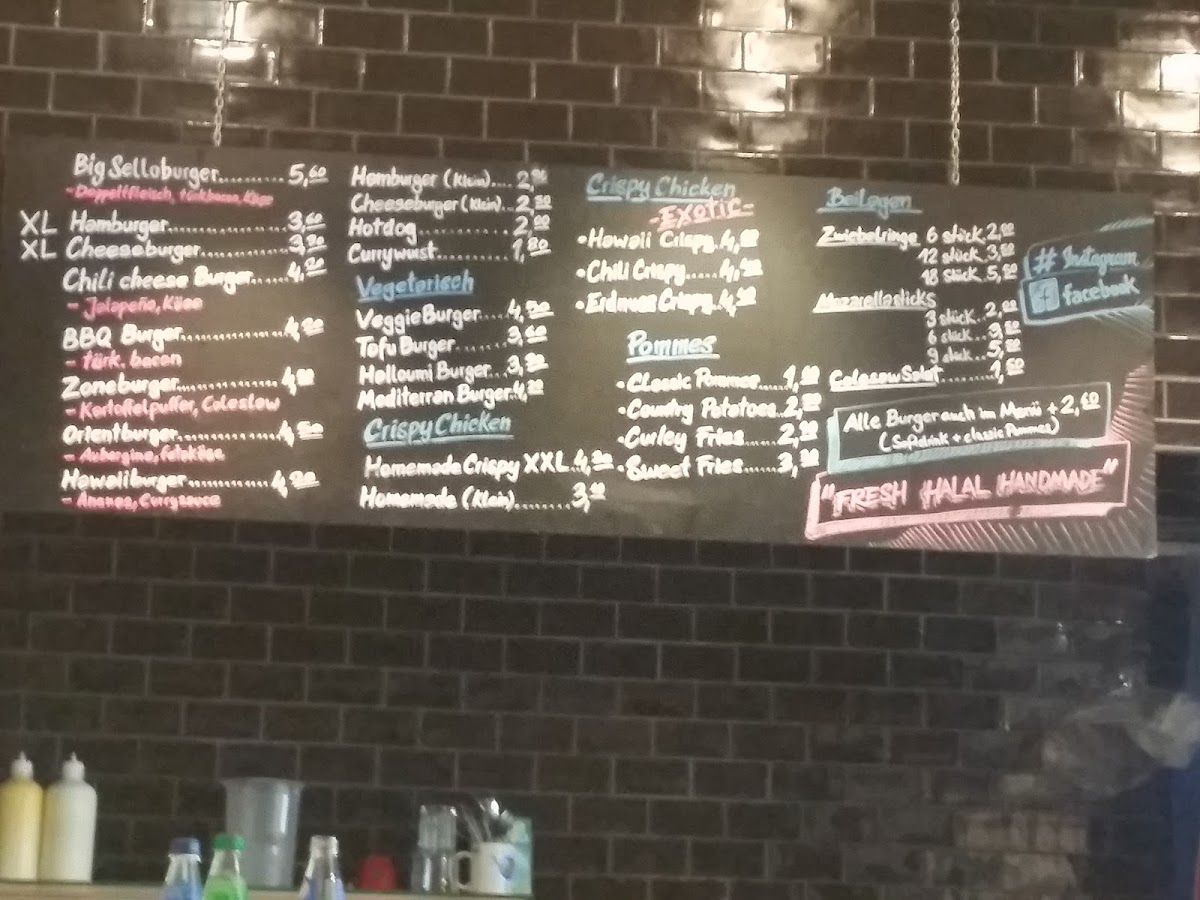 Big Selloburger......... 5,60
- Doppeltfleisch, türk bacon, Käse
XL Hamburger............ 3,60
XL Cheeseburger......... 3,90
Chili cheese Burger.... 4,20
- Jalapeño, Käse
BBQ Burger............ 4,20
- türk. bacon
Zoneburger............
- Kartoffelpuffer, Coleslaw
Orientburger............ 4,50
- Aubergine, fetakäse
Hawaiiburger............ 4,20
- Ananas, Currysauce
Hamburger (Klein)....
Cheeseburger (Klein)... 2,50
Hotdog.......... 2,00
Currywurst......... 1,80
Vegetarisch
Veggie Burger.... 4,50
Tofu Burger....... 3,60
Halloumi Burger...
Mediterran Burger..
Crispy Chicken
Homemade Crispy XXL..
Homemade (Klein).......
Crispy Chicken
-EXOTIC-
•Hawaii Crispy..
•Chili Crispy.....
•Erdnuss Crispy..
Pommes
•Classic Pommes.....
•Country Potatoes..
•Curley Fries......
•Sweet Fries.....
Beilagen
Zwiebelringe 6 stück 2,00
12 stück. 3,50
18 stück. 5,50
Mozarellasticks
3 stück..
6 stück..
9 stück..
Coleslaw Salat......... 1,50
# Instagram
f facebook
Alle Burger auch im Menü + 2,60
(Softdrink + classic Pommes)
"FRESH HALAL HANDMADE"